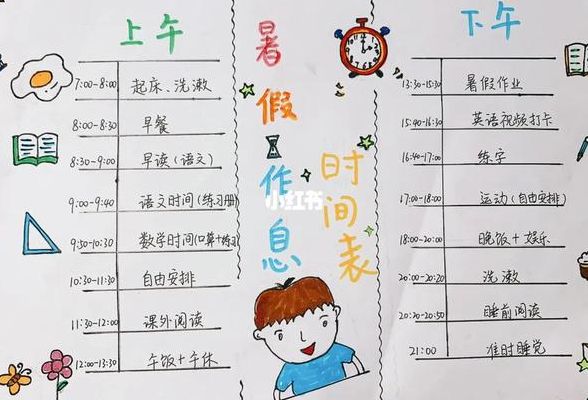 上午
7:00-8:00 起床、洗漱
8:00-8:30 早餐
8:30-9:00 早读(语文)
9:00-9:40 语文时间(练习册)
9:50-10:30 数学时间(口算+练习)
10:30-11:30 自由安排
11:30-12:00 课外阅读
12:00-13:30 午饭+午休
暑假作息
时间表
小红书
下午
13:30-15:30 暑假作业
15:40-16:30 英语视频打卡
16:40-17:00 练字
17:00-18:00 运动(自由安排)
18:00-20:00 晚饭+娱乐
20:00-20:20 洗漱
20:20-20:50 睡前阅读
21:00 准时睡觉